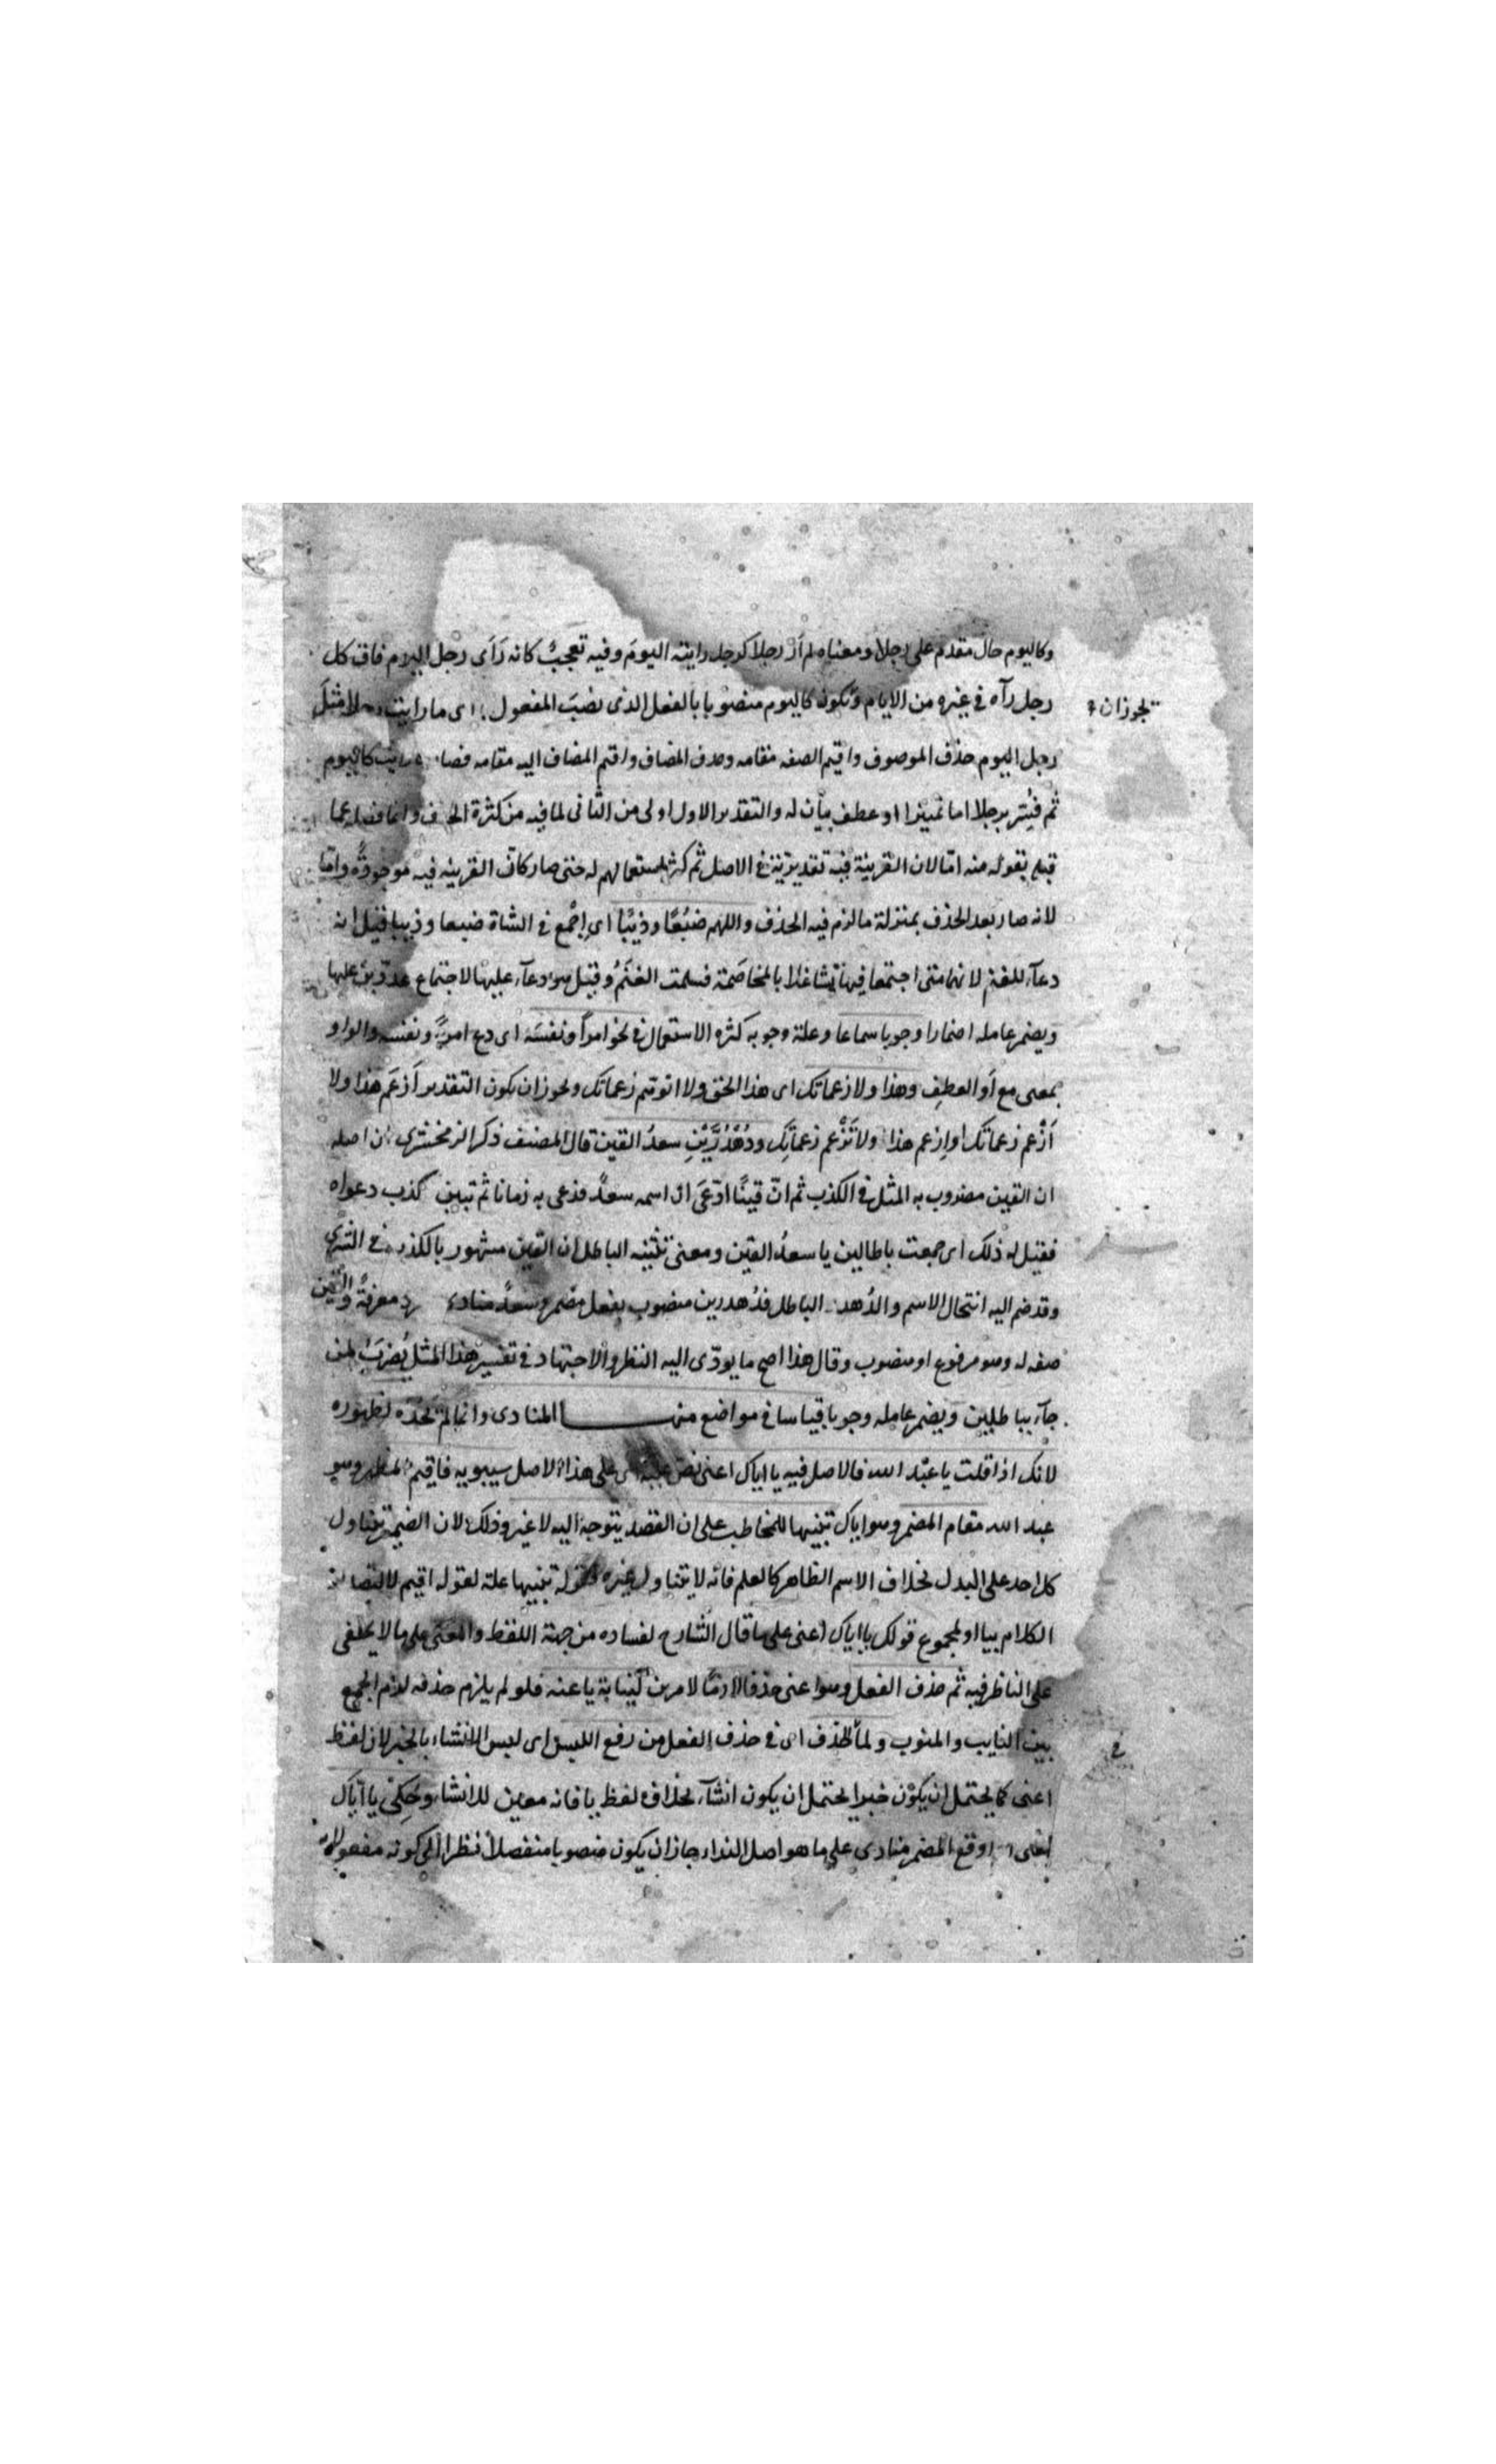 وكاليوم حال مقدم على رجلا ومعناه لم أر رجلا كرجل رايته اليوم وفيه تعجبٌ كانه رَأَى رجل اليوم فاق كل
رجل رآه في غيره من الايام ويكون كاليوم منصوبا بالفعل الذى نصَبَ المفعول اى ما رايت رجلا مثلَ
يجوز ان
رجل اليوم حذف الموصوف واقيم الصفه مقامه وحذف المضاف واقيم المضاف اليه مقامه فصار رايت كاليوم
ثم فُسِّر برجلا اما تمييزا او عطف بيان له والتقدير الاول اولى من الثانى لما فيه من كثرة الحذف وانما فصله عما
قبله بقوله منه امّا لان القرينة فيه تقديرية فى الاصل ثم كثر استعمالهم له حتى صار كانّ القرينه فيه موجودةٌ وامّا
لانه صار بعد الحذف بمنزلة ما لزم فيه الحذف واللهم ضبُعًا وذيبًا اى اِجْمع فى الشاة ضبعا وذيبا فقيل انه
دعآء للغنم لانهما متى اجتمعا فيها تشاغلا بالمخاصَمة فسلمت الغنَمُ وقيل هو دعآء عليها لاجتماع عدوّين عليها
ويضمر عامله اضمارا وجوبا سماعا وعلة وجوبه كثره الاستعمال فى نحو امرأً ونفسَه اى دع امرءً ونفسه والواو
بمعنى مع أو العطفِ وهذا ولا زعماتك اى هذا الحق ولا اتوهّم زعماتك ويحوز ان يكون التقدير أَزعَم هذا ولا
أَزْعم زعماتك او اِزعم هذا ولا تَزْعم زعماتِك ودُهْدُرَّيْنِ سعدُ القين قال المصنف ذكر الزمخشرى ان اصله
ان القين مضروب به المثل فى الكذب ثم انّ قينًا ادّعَى ان اسمه سعدٌ فدعى به زمانا ثم تبين كذب دعواه
فقيل له ذلك اى جمعت باطلين يا سعدُ القين ومعنى تثنيه الباطل ان القين مشهور بالكذب فى السُرَى
وقد ضم اليه انتحال الاسم والدُهد الباطل فدُهدرين منصوب بفعل مضمر وسعدٌ منادى معرفةٌ والقين
صفه له وهو مرفوع او منصوب وقال هذا اصح ما يودّى اليه النظر والاجتهاد فى تفسير هذا المثل يُضرَبُ لمن
جآء بباطلين ويضمر عامله وجوبا قياسا فى مواضع منها المنادى وانما لم يَحُدّه لظهوره
لانك اذا قلت يا عبْد الله فالاصل فيه يا اياك اعنى نصّ على هذا الاصل سيبويه فاقيم المظهر وهو
عبد الله مقام المضمر وهو اياك تنبيها للمخاطب على ان القصد يتوجه اليه لا غير وذلك لان الضمير يتناول
كل احد على البدل بخلاف الاسم الظاهر كالعلم فانه لا يتناول غيره وقوله تنبيها علة لقوله اقيم لا
الكلام بيا او لمجموع قولك يا اياك اعنى على ما قال الشارح لفساده من جهة اللفظ والمعنى على ما لا يخفى
على الناظر فيه ثم حذف الفعل وهو اعنى حذفا لازمًا لامرين لنيابة يا عنه فلو لم يلزم حذفه لازم الجمع
بين النايب والمنوب ولما فى الحذف اى فى حذف الفعل من رفع اللبس اى لبس الانشاء بالخبر لان لفظ
في
اعنى كما يحتمل ان يكوْن خبرا يحتمل ان يكون انشآء بخلاف لفظ يا فانه معين للانشاء وحُكِىَ يا ايّاك
اوقع المضمر منادى على ما هو اصل النداء جاز ان يكون منصوبا منفصلا نظرا الى كونه مفعولا